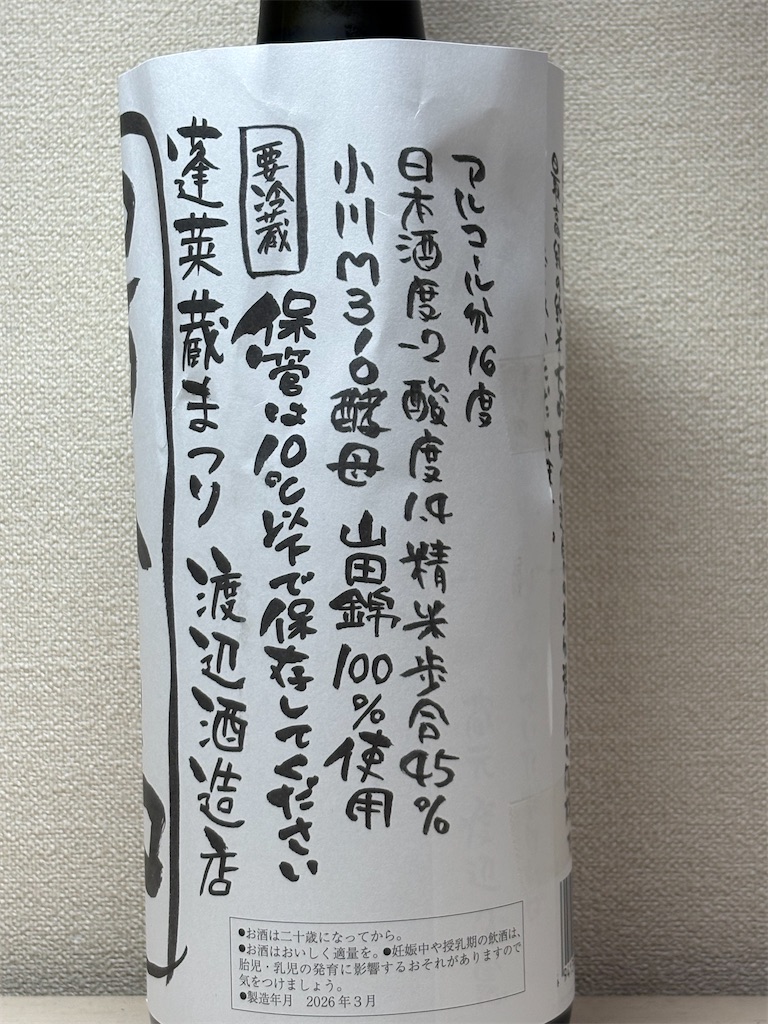 アルコール分16度
日本酒度-2 酸度1.4 精米歩合45%
小川M310酵母 山田錦100%使用
要冷蔵 保管は10℃以下で保存してください
蓬莱蔵まつり 渡辺酒造店
●お酒は二十歳になってから。
●お酒はおいしく適量を。●妊娠中や授乳期の飲酒は、
胎児・乳児の発育に影響するおそれがありますので
気をつけましょう。
●製造年月 2026年3月